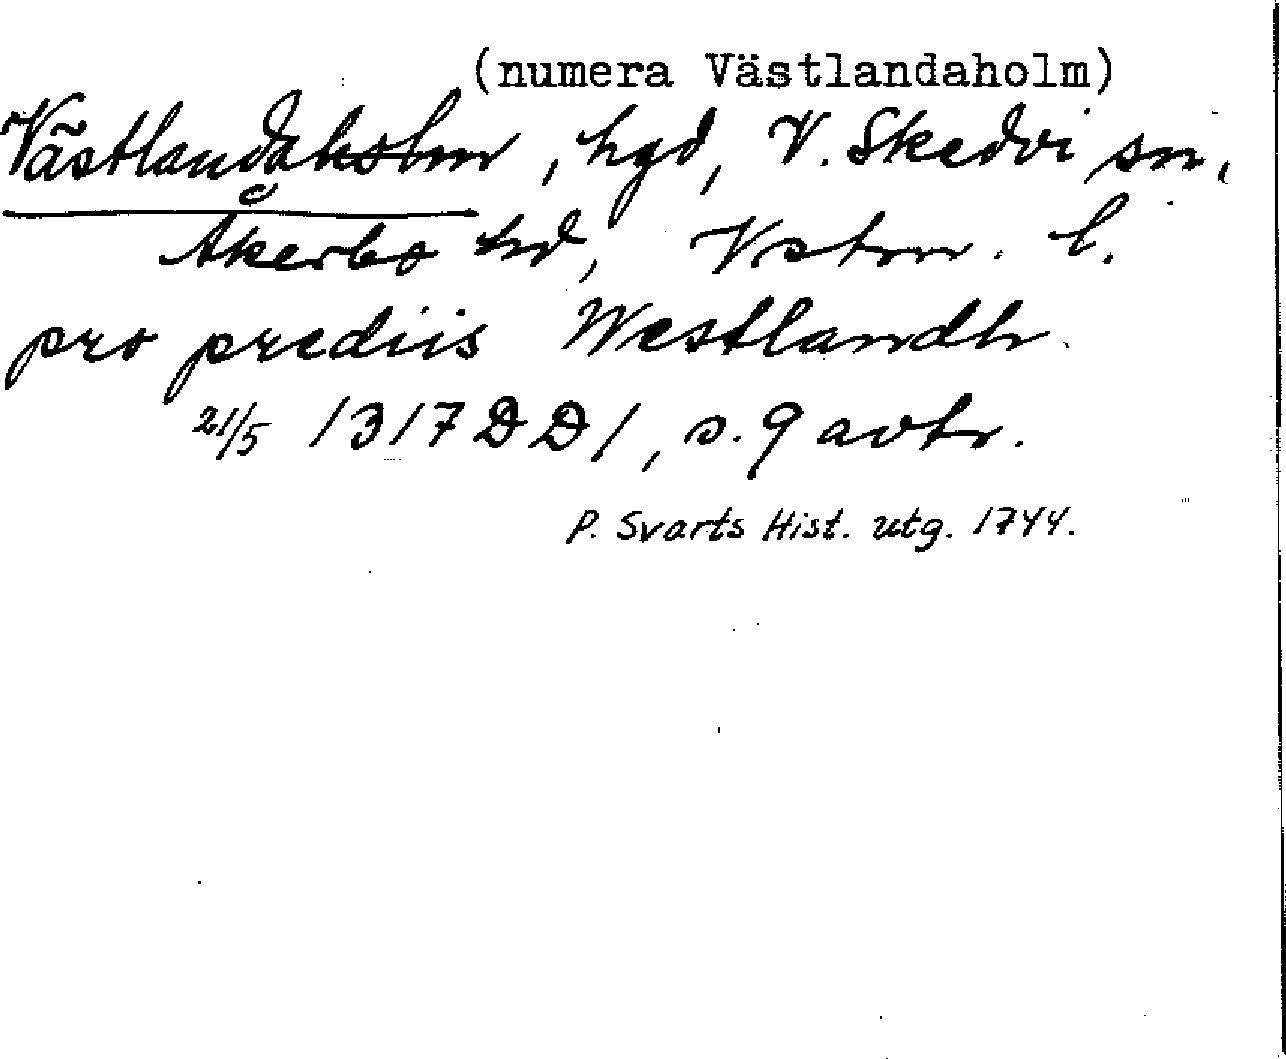 (numera Västlandaholm)
Västlandaholm, hgd, V. Skedvi sn,
Åkerbo hd, Vstm. l.
pro prediis Westlandh
21/5 1317 DD 1, s. 9 avtr.
P. Svarts Hist. utg. 1744.